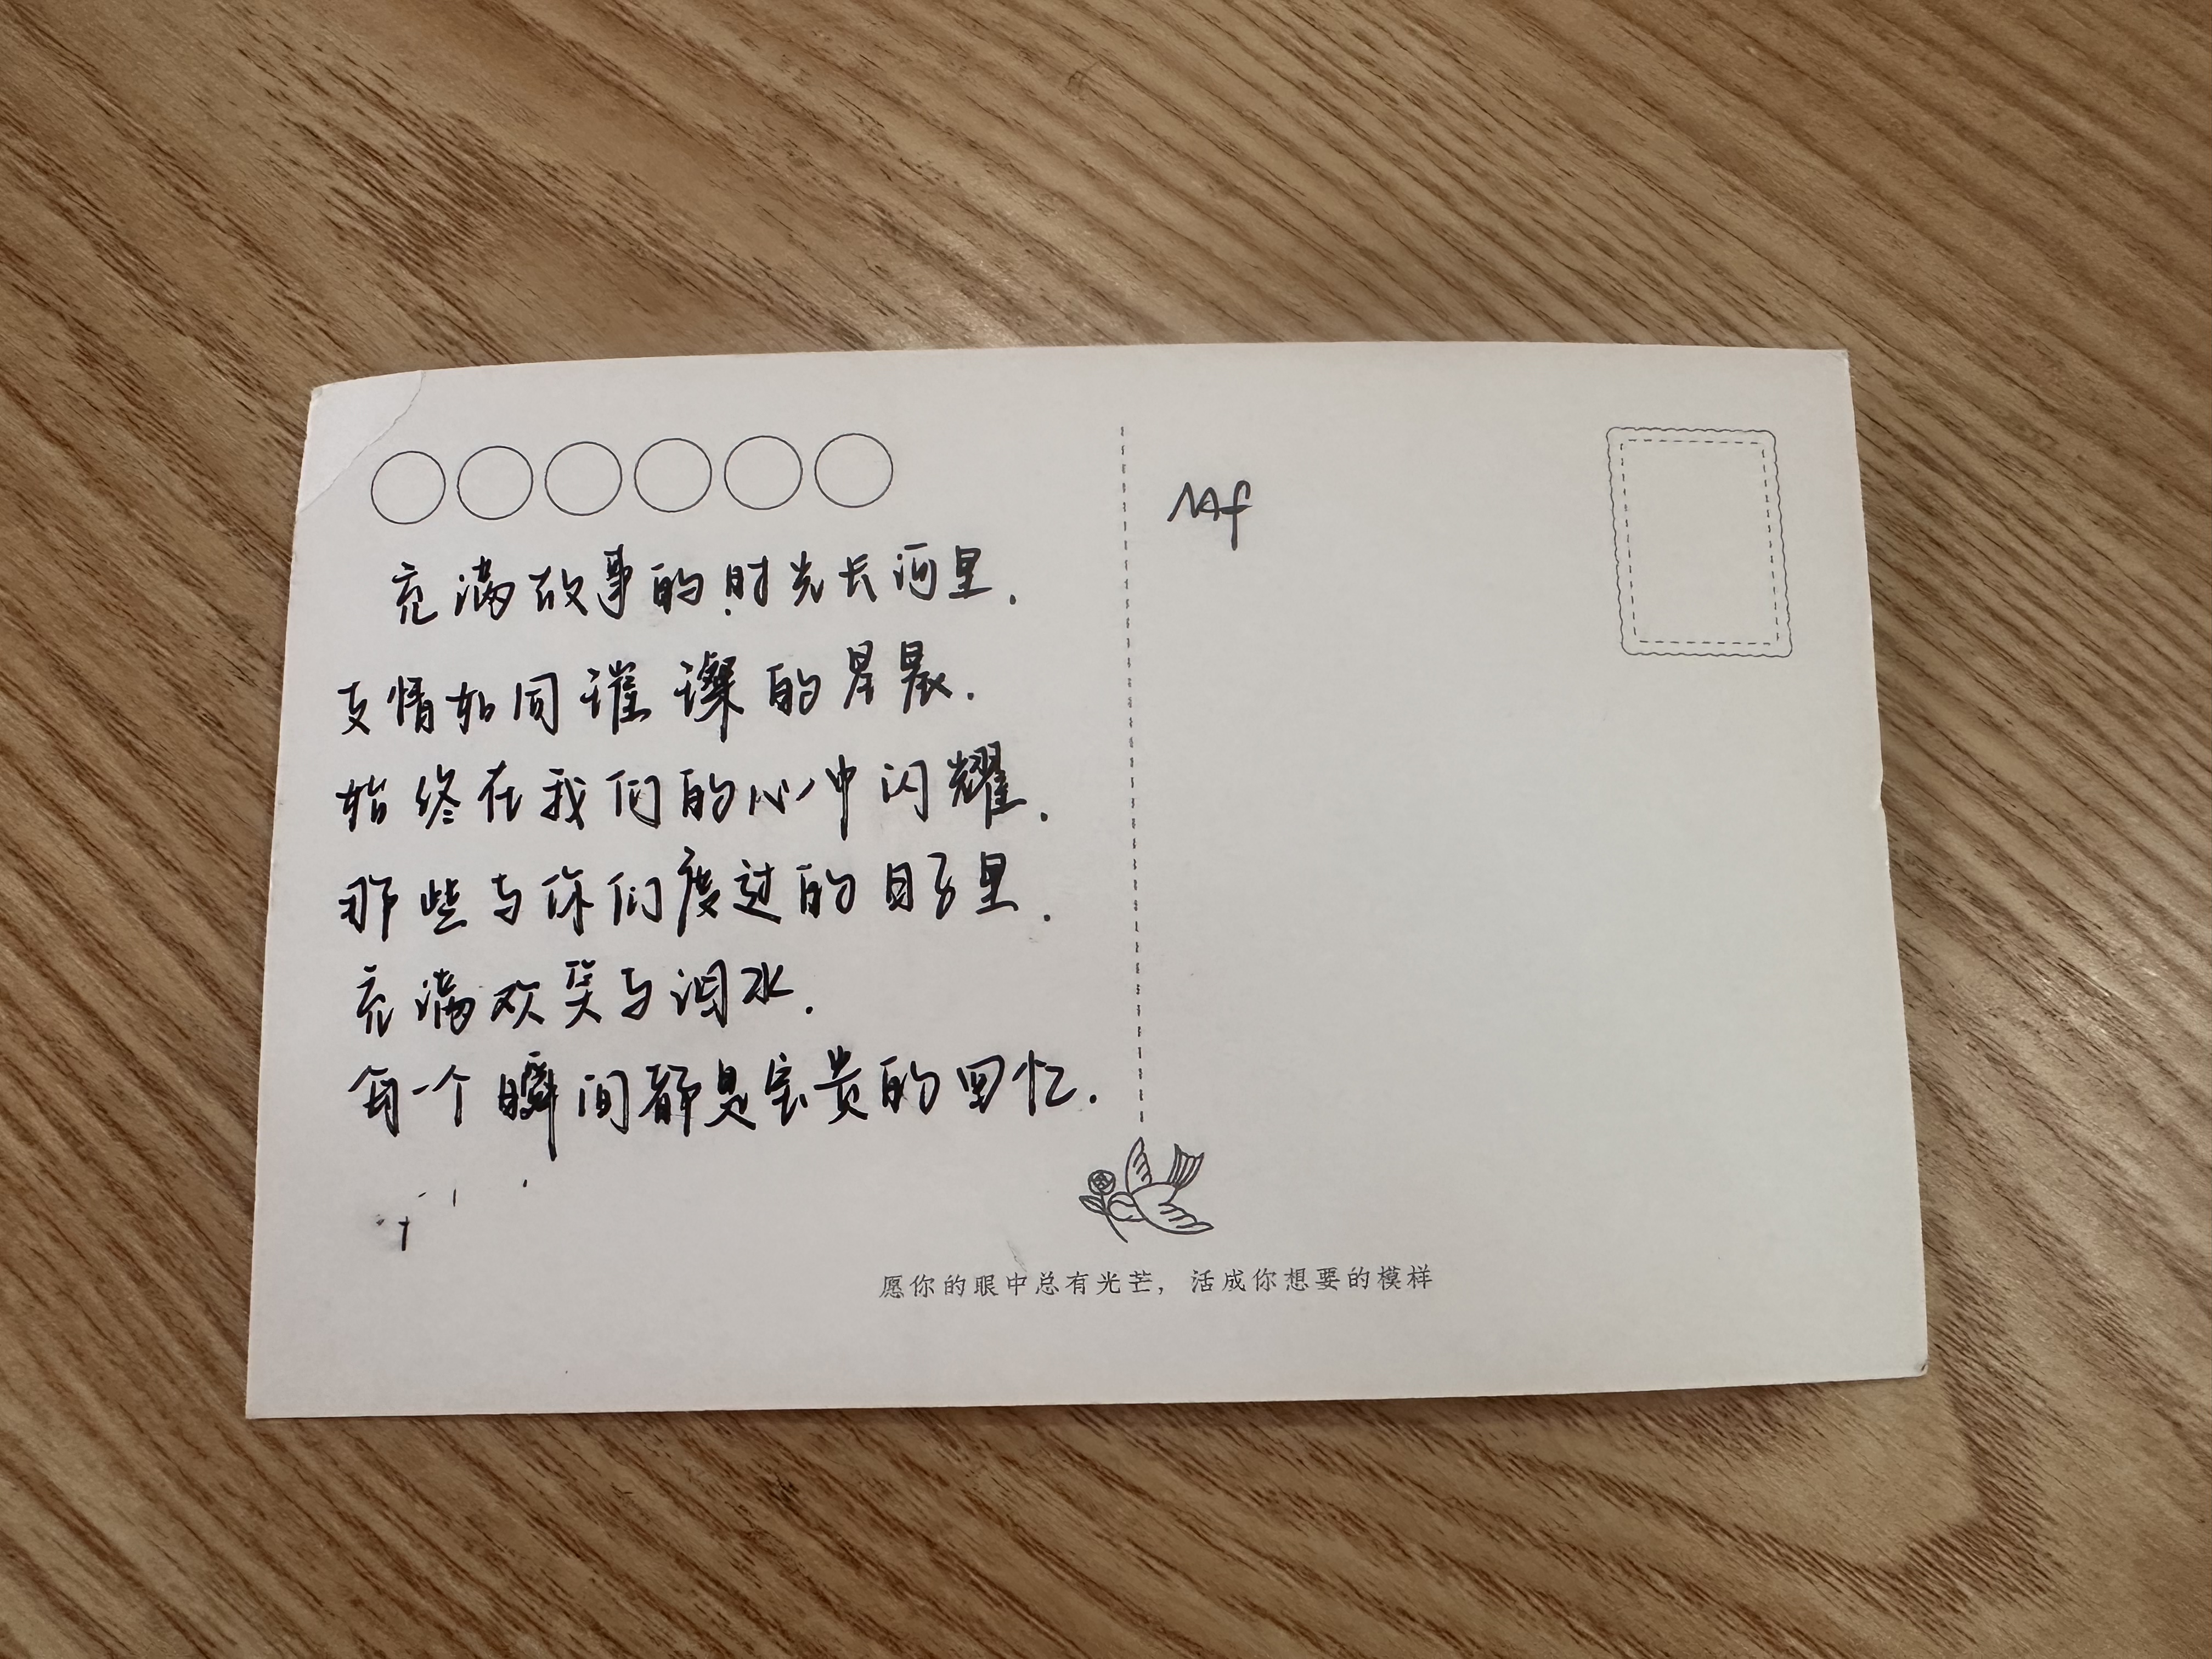 充满故事的时光长河里.
友情如同璀璨的星晨.
始终在我们的心中闪耀.
那些与你们度过的日子里.
充满欢笑与泪水.
每一个瞬间都是宝贵的回忆.
愿你的眼中总有光芒，活成你想要的模样